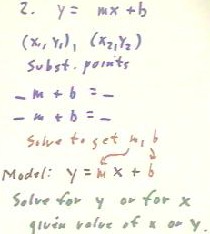 2. y = mx + b
(x₁, y₁), (x₂, y₂)
Subst. points
_ m + b = _
_ m + b = _
Solve to get m, b
Model: y = m x + b
Solve for y or for x
given value of x or y.